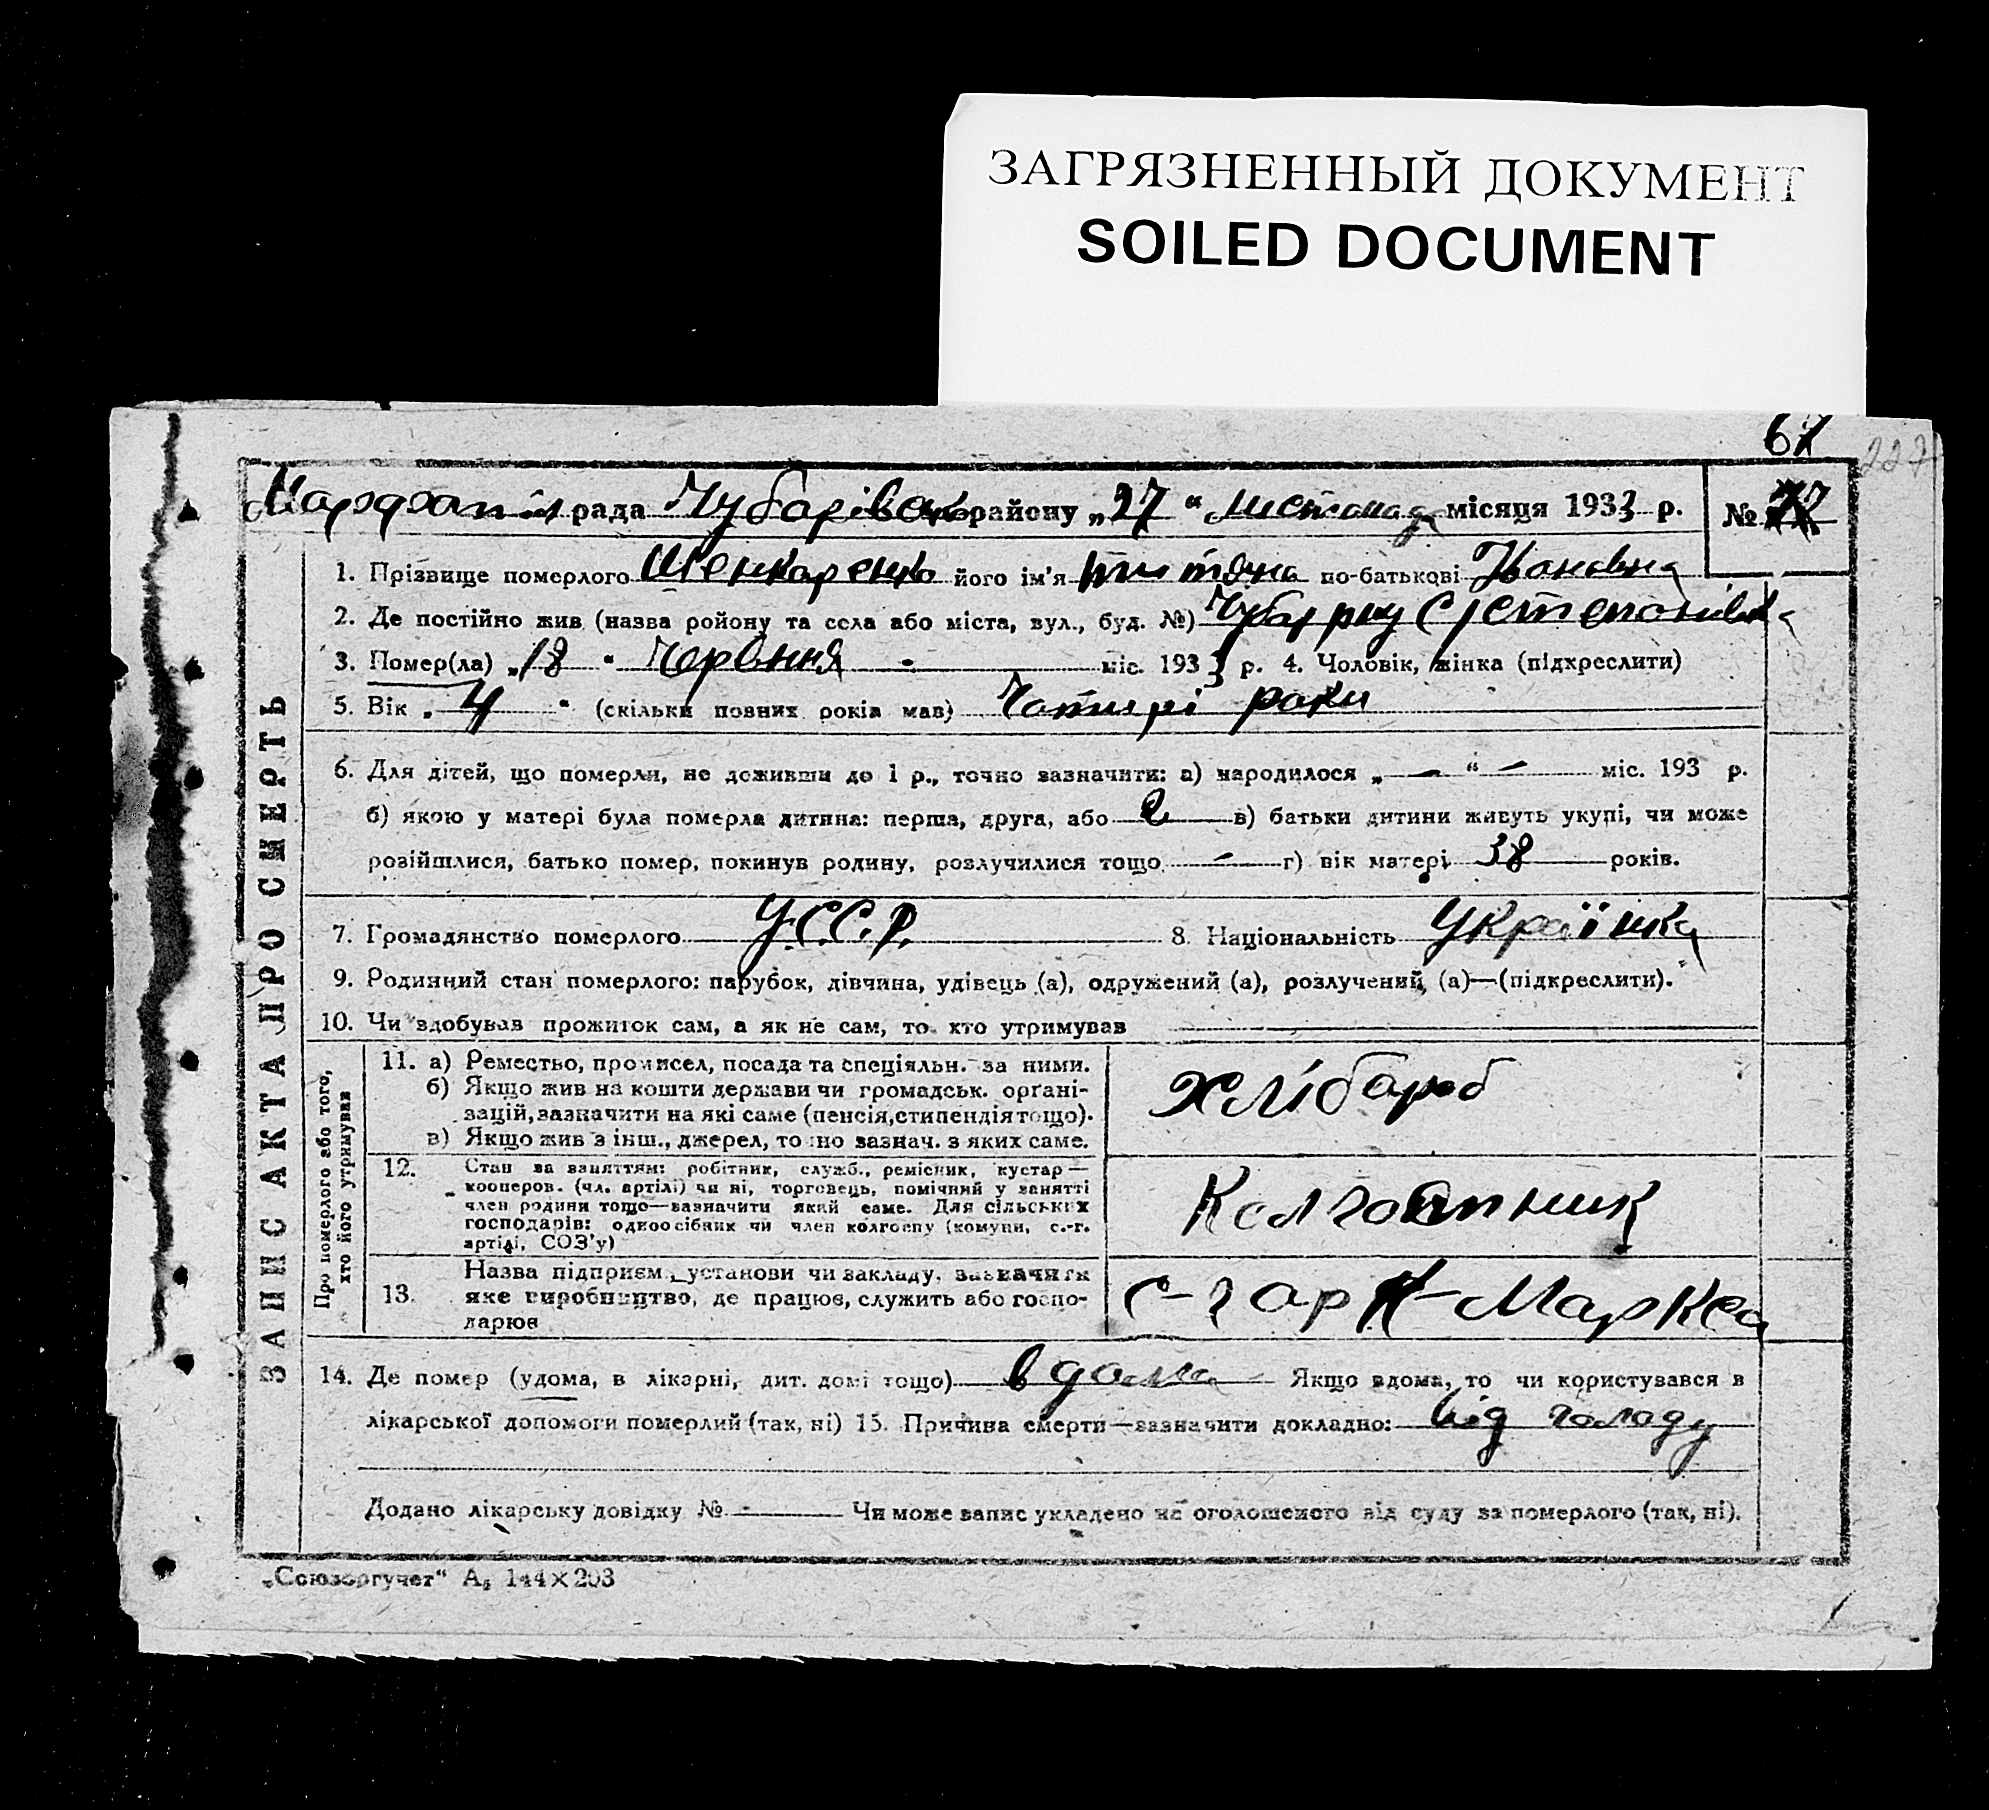 ЗАГРЯЗНЕННЫЙ ДОКУМЕНТ
SOILED DOCUMENT
67
227
рада Чубарівськ району „27“ листопад місяця 1933 р. №
ЗАПИС АКТА ПРО СМЕРТЬ
1. Прізвище померлого Шенкаренко його ім'я по-батькові
2. Де постійно жив (назва ройону та села або міста, вул., буд. №) Чубар рну с Степанівка
3. Помер(ла) „18 " Червння міс. 1933 р. 4. Чоловік, жінка (підхреслити)
5. Вік „ 4 " (скільки повних років мав) Чотирі роки
6. Для дітей, що померли, не доживши до 1 р., точно зазначити: а) народилося „ — “ — міс. 193 р.
б) якою у матері була померла дитина: перша, друга, або 2 в) батьки дитини живуть укупі, чи може
розійшлися, батько помер, покинув родину, розлучилися тощо — г) вік матері 38 років.
7. Громадянство померлого У.С.С.Р. 8. Національність Українка
9. Родинний стан померлого: парубок, дівчина, удівець (а), одружений (а), розлучений (а)—(підкреслити).
10. Чи здобував прожиток сам, а як не сам, то хто утримував
Про померлого або того,
хто його утримував
11. а) Ремество, промисел, посада та спеціяльн. за ними.
б) Якщо жив на кошти держави чи громадськ. органі-
зацій, зазначити на які саме (пенсія, стипендія тощо).
в) Якщо жив з інш., джерел, то зазнач. з яких саме.
хлібороб
12. Стан за заняттям: робітник, служб., ремісник, кустар—
кооперов. (чл. артілі) чи ні, торговець, помічний у занятті
член родини тощо—зазначити який саме. Для сільських
господарів: одноосібник чи член колгоспу (комуни, с.-г.
артілі, СОЗ'у)
Колгоспник
13. Назва підприєм., установи чи закладу, зазначити
яке виробництво, де працює, служить або госпо-
дарює
с-г ар К-Маркса
14. Де помер (удома, в лікарні, дит. домі тощо) вдома Якщо вдома, то чи користувався в
лікарської допомоги померлий (так, ні) 15. Причина смерти—зазначити докладно: від голоду
Додано лікарську довідку № — Чи може запис укладено на оголошеного від суду за померлого (так, ні).
„Союзоргучет“ А₅ 144×203